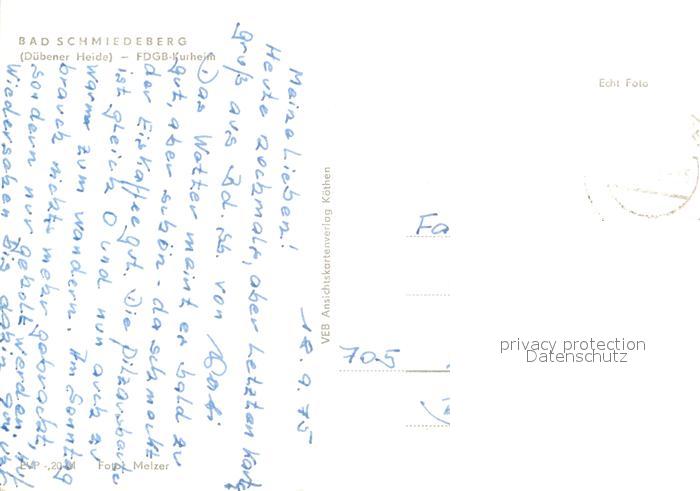 BAD SCHMIEDEBERG
(Dübener Heide) – FDGB-Kurheim
Echt Foto
18.9.75
Meine Lieben!
Heute nochmals, aber letzten Karte
gruß aus Bd. Sb. von
Das Wetter meint es bald zu
gut, aber schön - da schmeckt
der Eiskaffee gut. Die Pilzausbeute
ist gleich 0 und nun auch zu
warm zum wandern. Am Sonntag
brauch nichts mehr gebracht,
sondern nur geholt werden,
Wiedersehen Bis dahin
VEB Ansichtskartenverlag Köthen
Fa
705
privacy protection
Datenschutz
EVP -,20 M Foto: Melzer